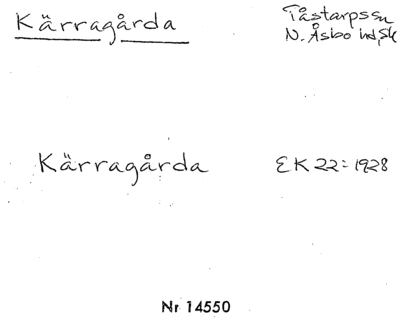 Kärragårda
Tåstarps sn
N. Åsbo hd, Sk
Kärragårda
EK 22: 1928
Nr 14550